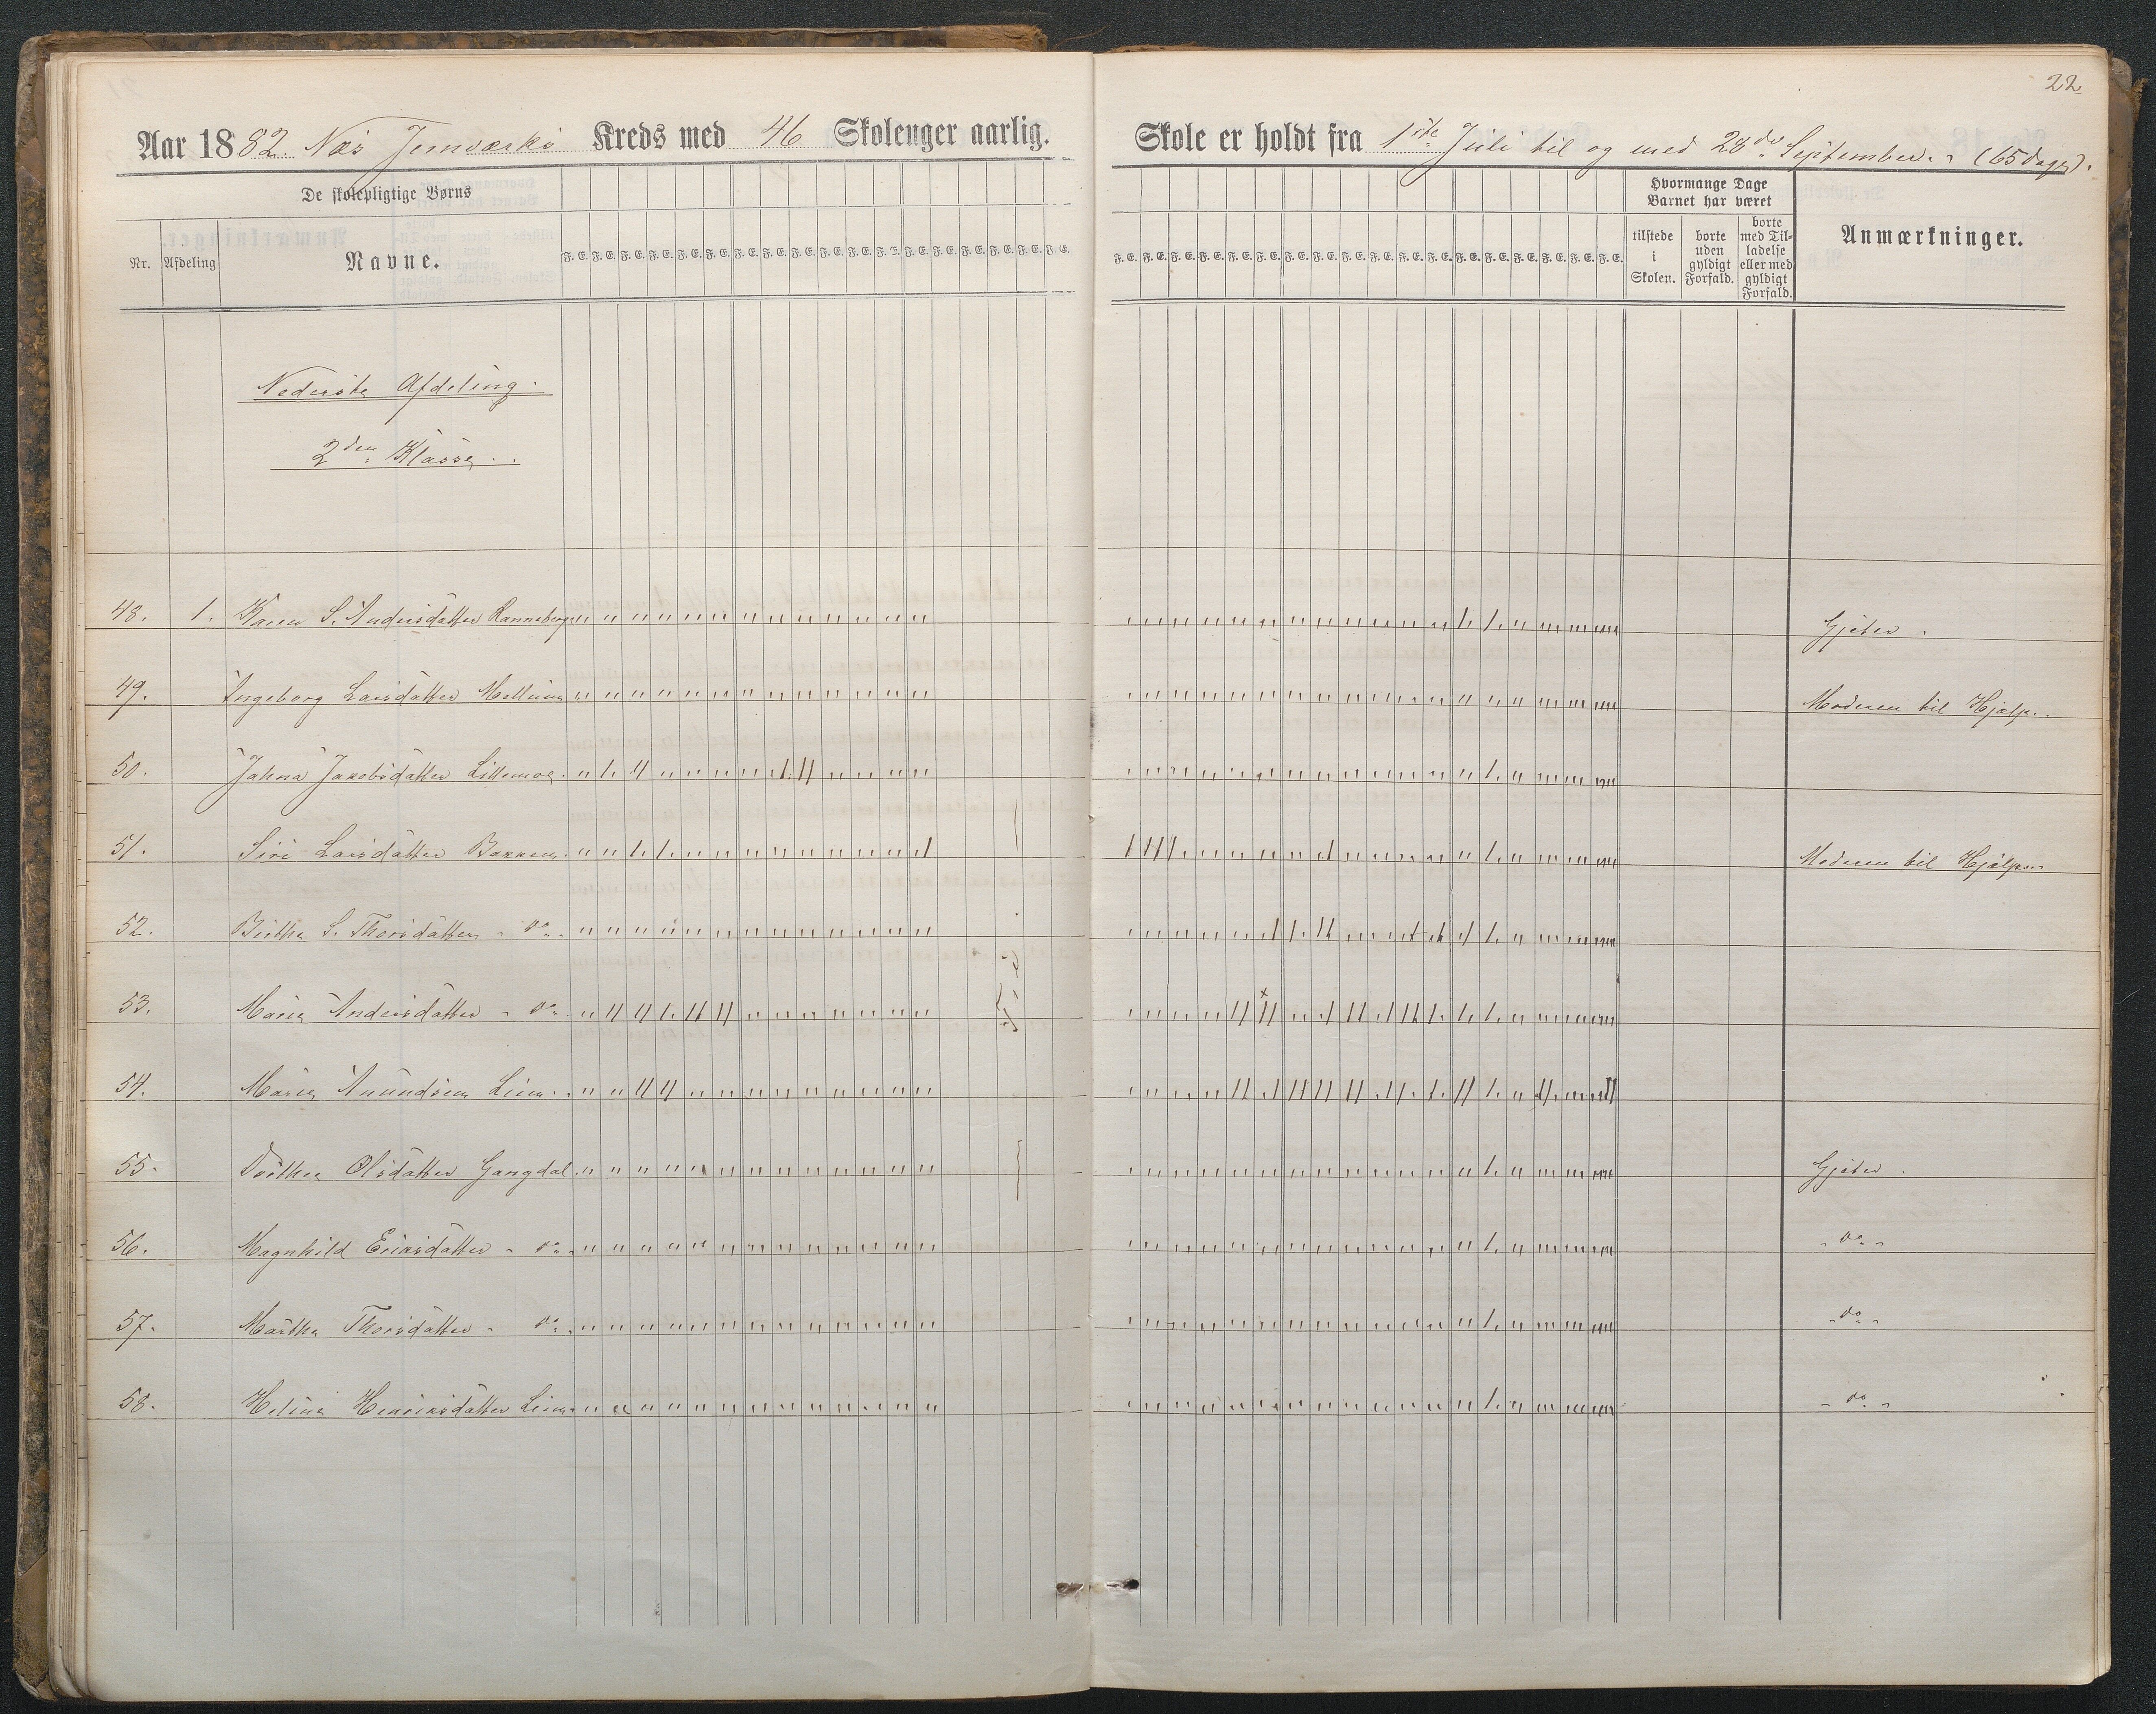 22
Aar 1882. Næs Jernværks Kreds med 46 Skolenger aarlig. Skole er holdt fra 1ste Juli til og med 28de September. (65 dage).
De skolepligtige Børns
Hvormange Dage
Barnet har været
Nr. Afdeling Navne. F. E. F. E. F. E. F. E. F. E. F. E. F. E. F. E. F. E. F. E. F. E. F. E. F. E. F. E. F. E. F. E. F. E. F. E.
tilstede i Skolen. borte uden gyldigt Forfald. borte med Tilladelse eller med gyldigt Forfald. Anmærkninger.
Nederste Afdeling.
2den Klasse.
48. 1. Karen S. Andersdatter Ranneberg Gjeter.
49. Ingeborg Larsdatter Moderen til Hjælp.
50. Jahna Jakobsdatter
51. Siri Larsdatter Bakken. Moderen til Hjælp.
52. Birthe S. Thorsdatter - do.
53. Maria Andersdatter - do.
54. Maria Anundsen Lien.
55. Dorthea Olsdatter Gangdal. Gjeter.
56. Magnhild Eriksdatter - do. - do -
57. Martha Thorsdatter - do. - do -
58. Helina Henriksdatter Lien. - do -